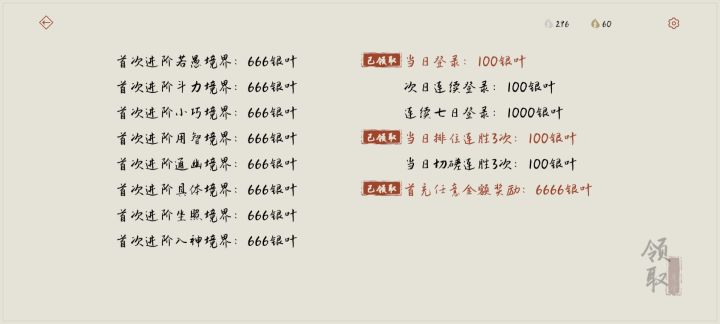 296
60
首次进阶若愚境界：666银叶
首次进阶斗力境界：666银叶
首次进阶小巧境界：666银叶
首次进阶用智境界：666银叶
首次进阶通幽境界：666银叶
首次进阶具体境界：666银叶
首次进阶坐照境界：666银叶
首次进阶入神境界：666银叶
已领取 当日登录：100银叶
次日连续登录：100银叶
连续七日登录：1000银叶
已领取 当日排位连胜3次：100银叶
当日切磋连胜3次：100银叶
已领取 首充任意金额奖励：6666银叶
领取